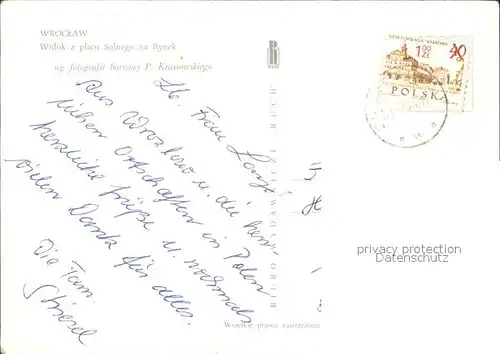 WROCŁAW
Widok z placu Solnego na Rynek
wg fotografii barwnej P. Krassowskiego
BIURO WYDAWNICZE „RUCH”
1,00 ZŁ
40
POLSKA
Lb. Frau Lanz!
Aus Wrozlaw u. die
lieben Ortschaften in Polen
herzliche Grüße u. nochmals
vielen Dank für alles.
Die Fam.
Wszelkie prawa zastrzeżone
privacy protection
Datenschutz